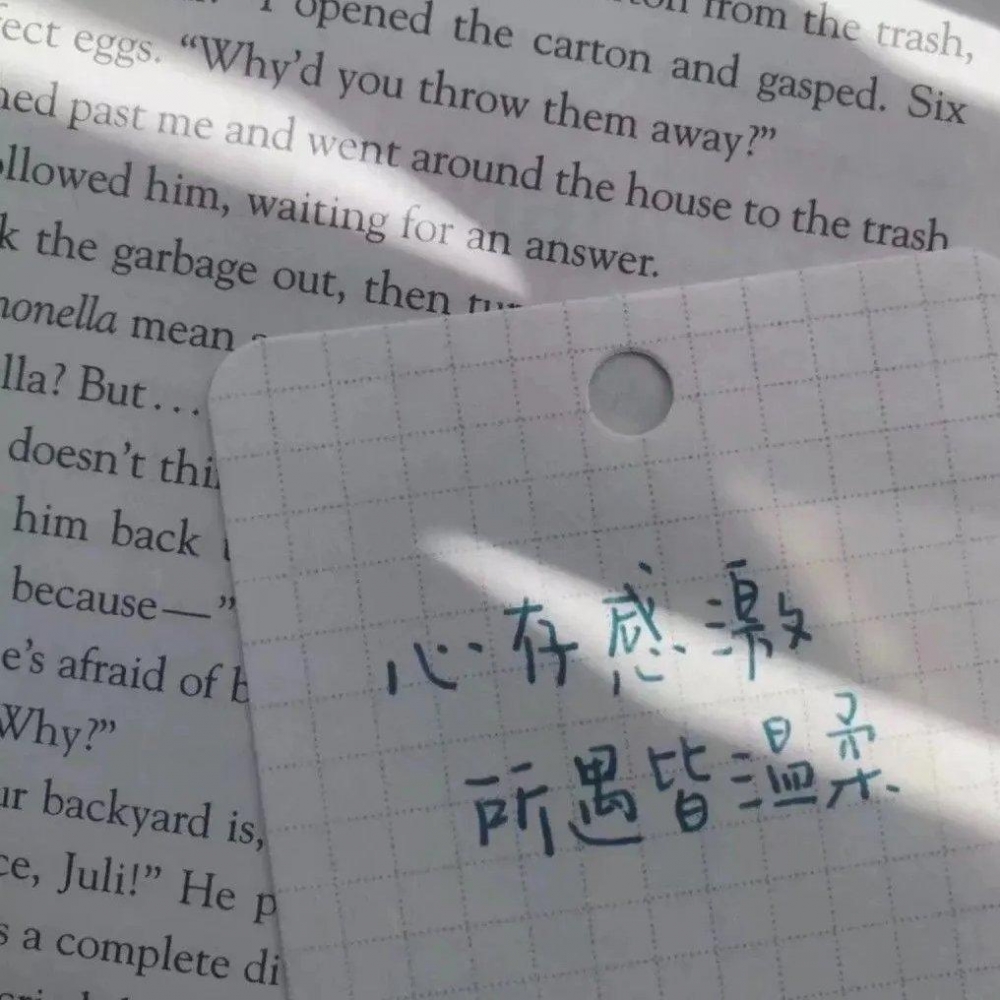 from the trash,
I opened the carton and gasped. Six
ect eggs. “Why’d you throw them away?”
ed past me and went around the house to the trash
llowed him, waiting for an answer.
k the garbage out, then
monella mean
lla? But...
doesn’t thi
him back
because—”
e’s afraid of b
Why?”
ur backyard is,
ce, Juli!” He p
s a complete di
心存感激
所遇皆温柔